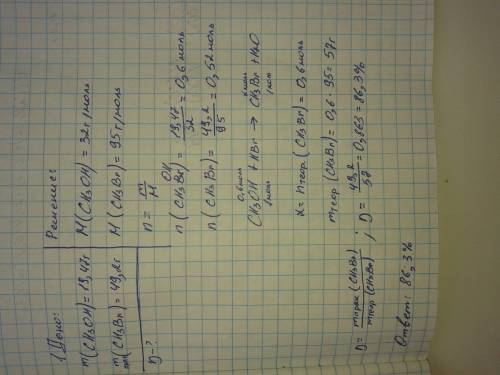 1. Дано:
m(CH3OH) = 19,47г
mпр(CH3Br) = 49,2г
D-?
Решение:
M(CH3OH) = 32г/моль
M(CH3Br) = 95г/моль
n = m/M
n(CH3OH) = 19,47/32 = 0,6 моль
n(CH3Br) = 49,2/95 = 0,52 моль
0,6моль хмоль
CH3OH + HBr → CH3Br + H2O
1моль 1моль
x = nтеор(CH3Br) = 0,6 моль
mтеор(CH3Br) = 0,6 · 95 = 57г
D = mпрак(CH3Br)/mтеор(CH3Br) ; D = 49,2/57 = 0,863 = 86,3%
Ответ: 86,3%